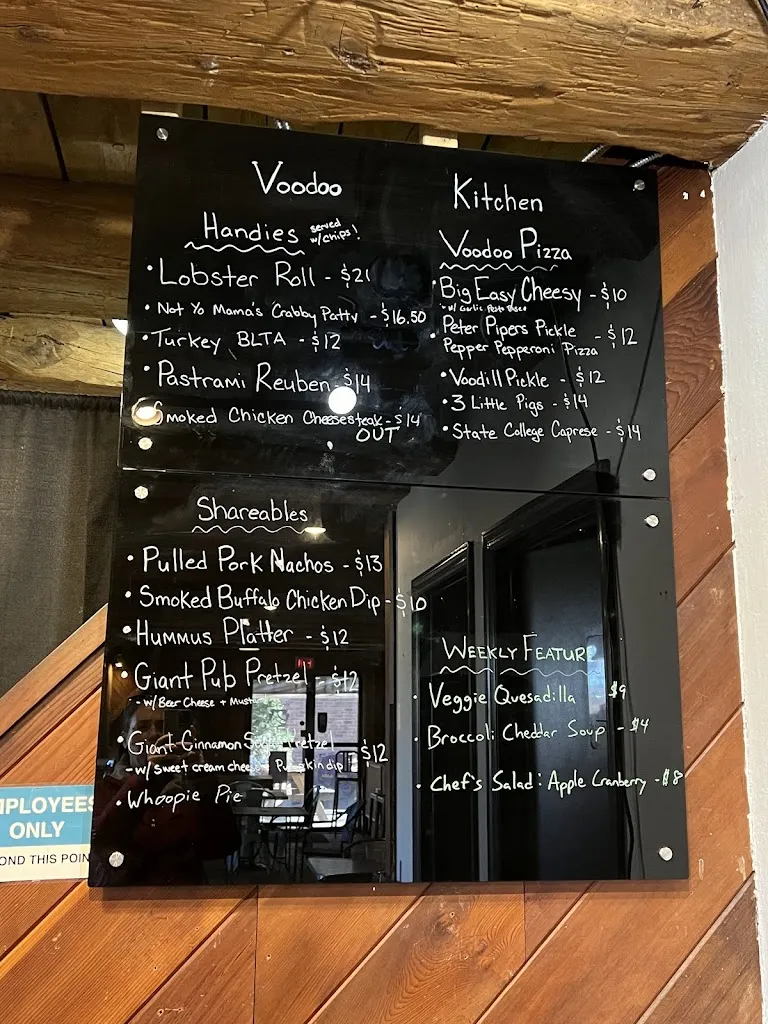 Voodoo Kitchen
Handies served
w/chips!
• Lobster Roll - $21
• Not Yo Mama's Crabby Patty - $16.50
• Turkey BLTA - $12
• Pastrami Reuben - $14
Smoked Chicken Cheesesteak - $14
OUT
Voodoo Pizza
• Big Easy Cheesy - $10
• Peter Pipers Pickle
Pepper Pepperoni Pizza - $12
• Voodill Pickle - $12
• 3 Little Pigs - $14
• State College Caprese - $14
Shareables
• Pulled Pork Nachos - $13
• Smoked Buffalo Chicken Dip - $10
• Hummus Platter - $12
• Giant Pub Pretzel - $12
- w/ Beer Cheese + Mustard
• Giant Cinnamon Pretzel
- w/ sweet cream cheese Pumpkin dip $12
• Whoopie Pie
WEEKLY FEATURE
• Veggie Quesadilla $9
• Broccoli Cheddar Soup - $4
• Chef's Salad: Apple Cranberry - $8
MPLOYEES
ONLY
OND THIS POIN